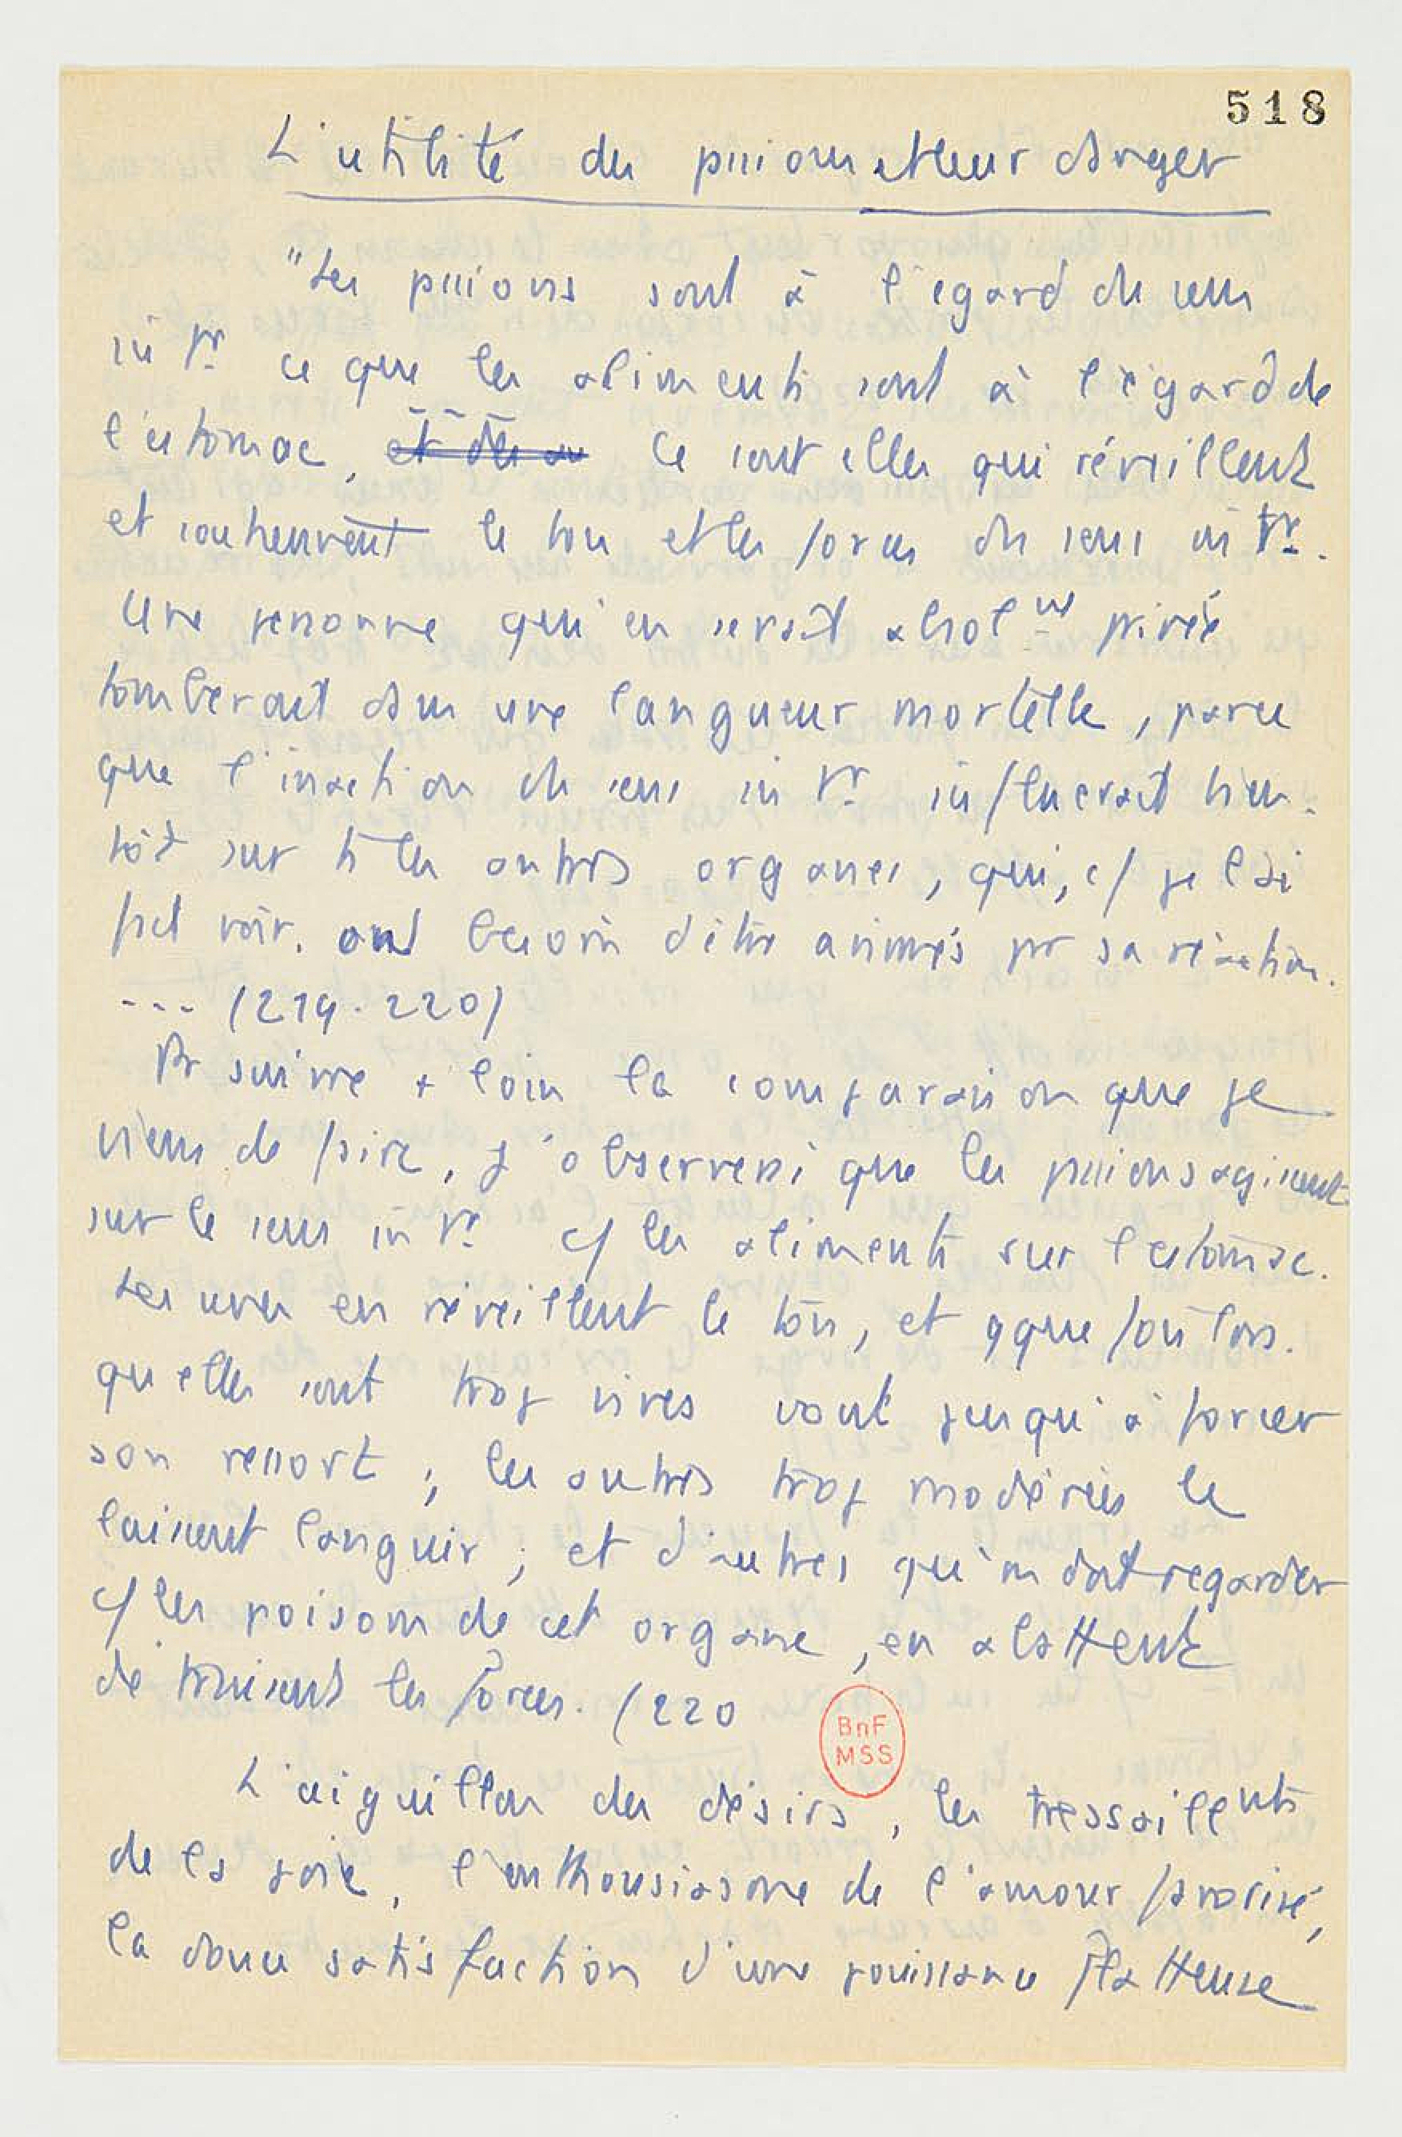 518
L'utilité des passions et leur danger
"Les passions sont à l'égard du sens
int<sup>r</sup> ce que les aliments sont à l'égard de
l'estomac, ~~et des au~~ Ce sont elles qui réveillent
et soutiennent le ton et les forces du sens int<sup>r</sup>.
Une personne qui en serait absol<sup>nt</sup> privée
tomberait dans une langueur mortelle, parce
que l'inaction du sens int<sup>r</sup> influerait bien-
tôt sur ts les autres organes, qui, c/ je l'ai
fait voir, ont besoin d'être animés pr sa réaction.
--- (219-220)
Pr suivre + loin la comparaison que je
viens de faire, j'observerai que les passions agissent
sur le sens int<sup>r</sup> c/ les aliments sur l'estomac.
Les unes en réveillent le ton, et qque fois lors-
qu'elles sont trop vives vont jusqu'à forcer
son ressort ; les autres trop modérées le
laissent languir ; et d'autres qu'on doit regarder
c/ les poisons de cet organe, en abattent
détruisent les forces. (220
BnF
MSS
L'aiguillon des désirs, les tressaill<sup>nts</sup>
de la joie, l'enthousiasme de l'amour favorisé,
la douce satisfaction d'une jouissance flatteuse